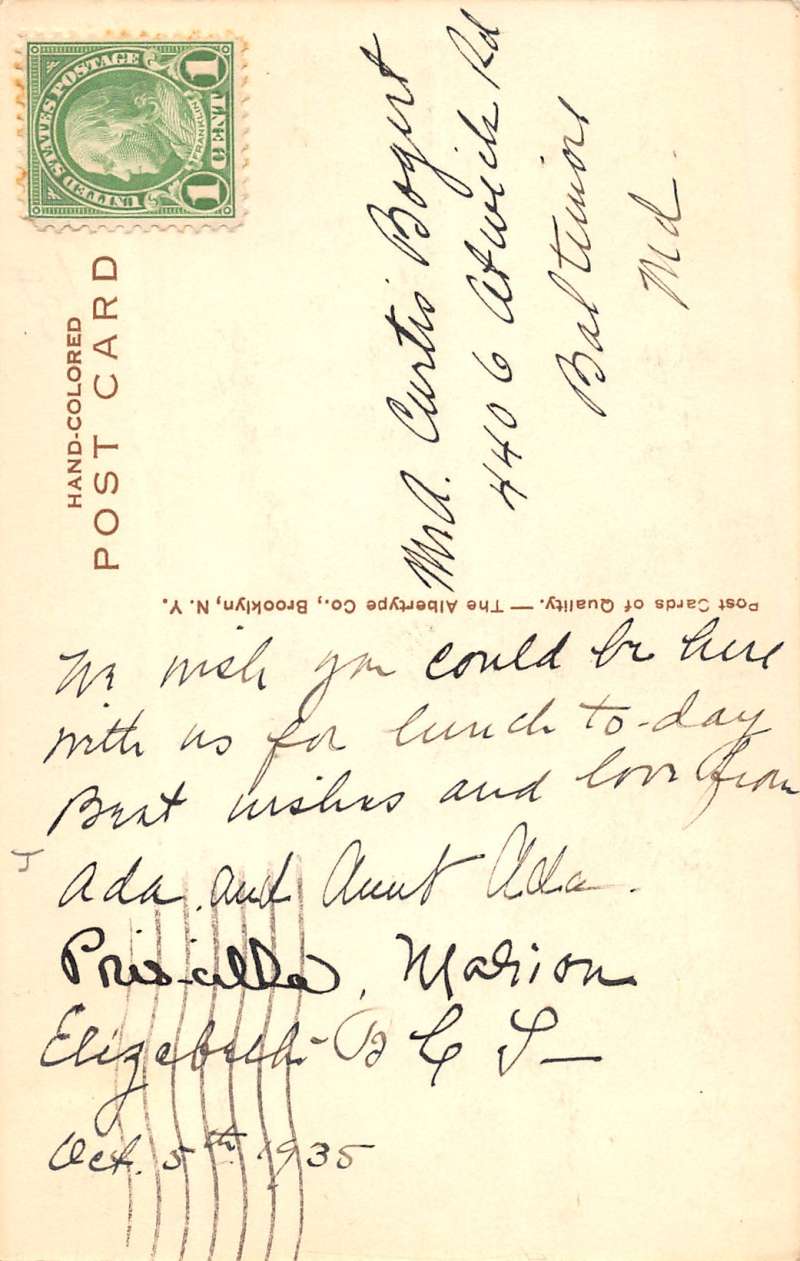 UNITED STATES POSTAGE
FRANKLIN
1 CENT 1
HAND-COLORED
POST CARD
Mr A. Curtis Bogert
4406 Atwick Rd
Baltimore
Md.
Post Cards of Quality. — The Albertype Co., Brooklyn, N. Y.
We wish you could be here
with us for lunch to-day
Best wishes and love from
Ada and Aunt Ada.
Priscilla, Marion
Elizabeth
Oct. 5th 1935